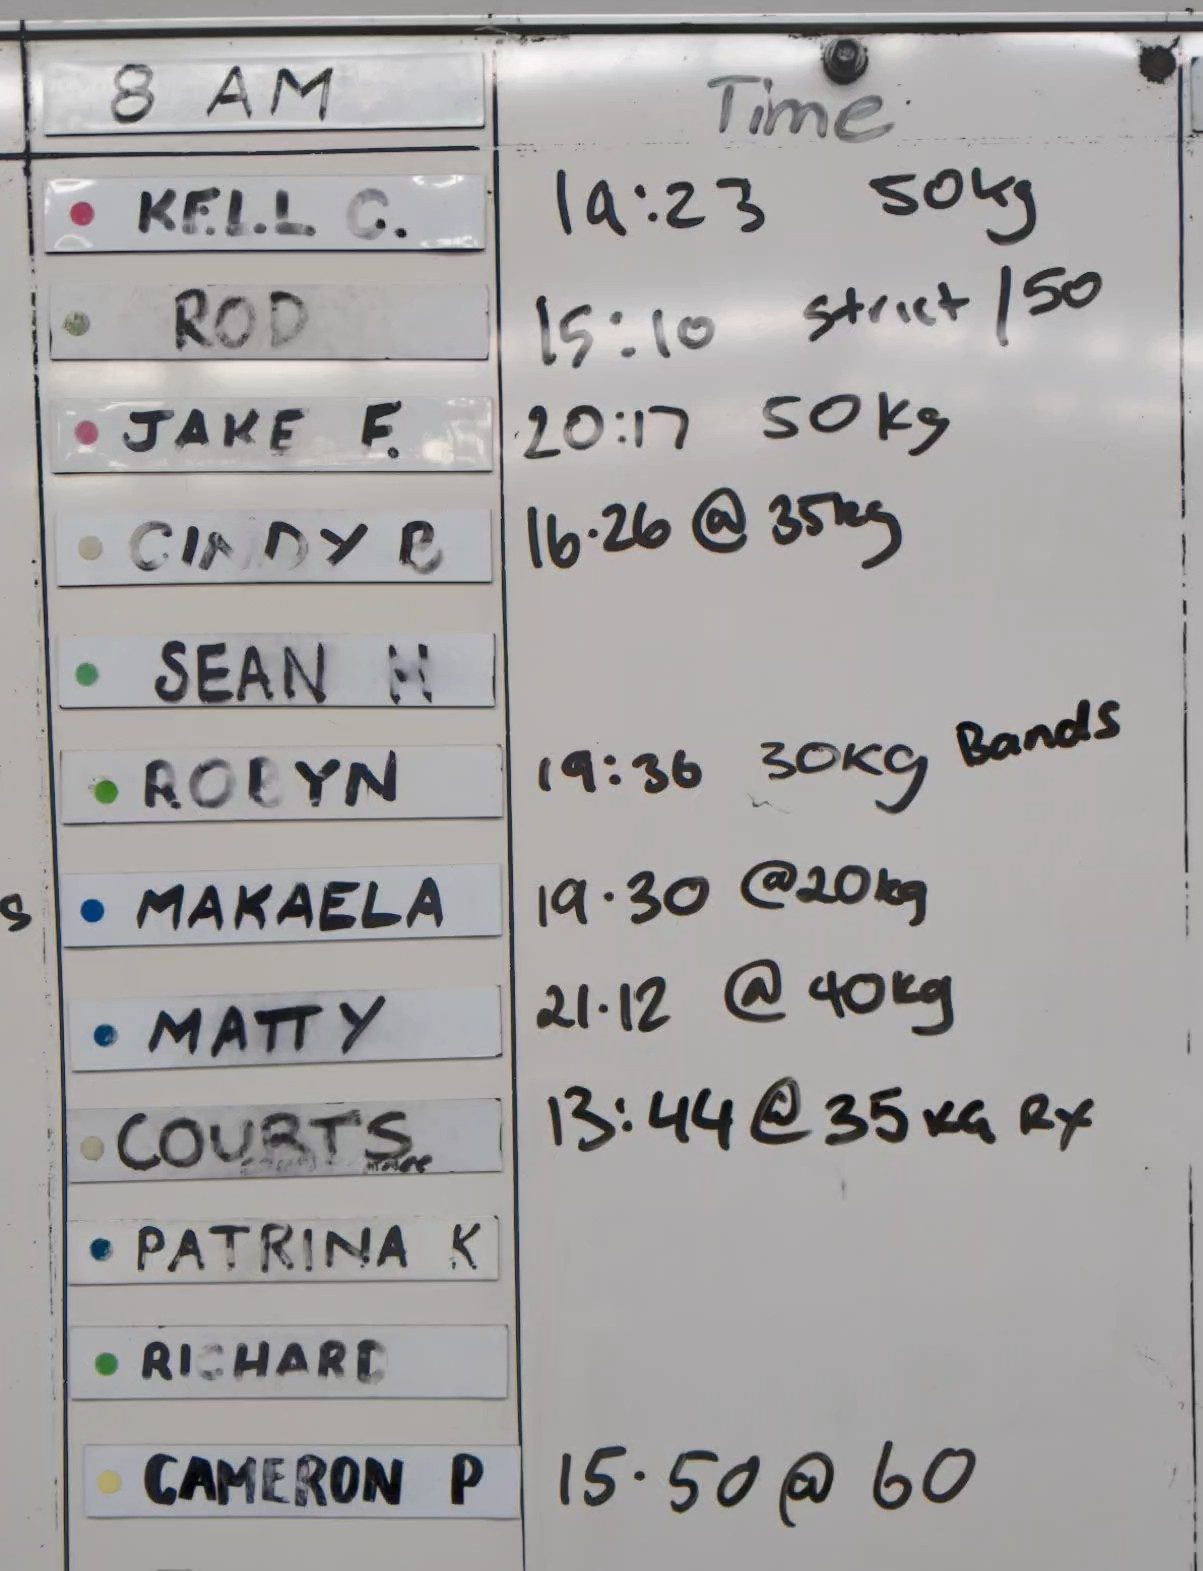 8 AM Time
KELL C. 19:23 50kg
ROD 15:10 strict / 50
JAKE F. 20:17 50kg
CINDY B 16.26 @ 35kg
SEAN H
ROBYN 19:36 30KG Bands
s MAKAELA 19.30 @20kg
MATTY 21.12 @ 40kg
COURTS 13:44 @ 35kg RX
PATRINA K
RICHARD
CAMERON P 15.50 @ 60